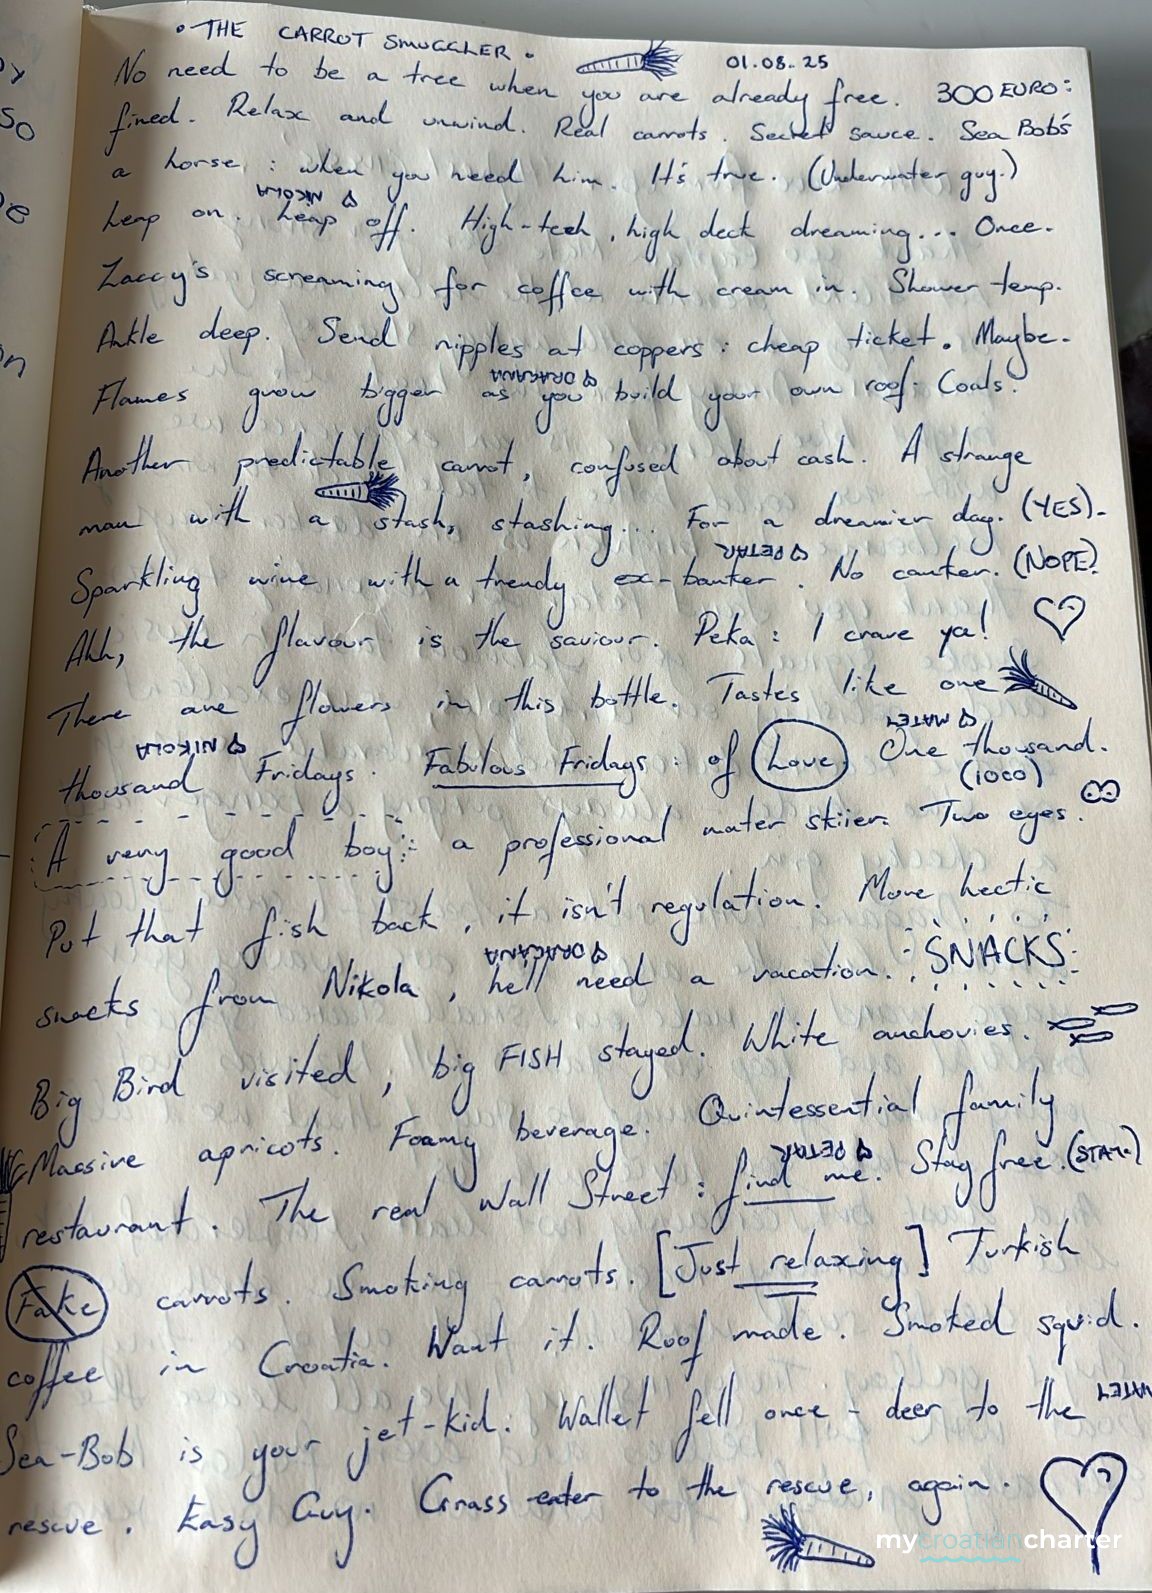 • THE CARROT SMUGGLER •
01.08.25
No need to be a tree when you are already free. 300 EURO:
fined. Relax and unwind. Real carrots. Secret sauce. Sea Bob's
a horse : when you need him. It's true. (Underwater guy.)
NIKOLA
Leap on. Leap off. High-tech, high deck dreaming... Once.
Zaccy's screaming for coffee with cream in. Shower temp.
Ankle deep. Send nipples at coppers : cheap ticket. Maybe.
DRAGANA
Flames grow bigger as you build your own roof. Coals.
Another predictable carrot, confused about cash. A strange
man with a stash, stashing... For a dreamier day. (YES).
PETAR
Sparkling wine with a trendy ex-banker. No canker. (NOPE)
Ahh, the flavour is the saviour. Peka : I crave ya!
There are flowers in this bottle. Tastes like one
NIKOLA
MATEJ
thousand Fridays. Fabulous Fridays : of Love. One thousand.
(1000)
A very good boy : a professional water skiier. Two eyes.
Put that fish back, it isn't regulation. More hectic
DRAGANA
snacks from Nikola, he'll need a vacation. SNACKS
Big Bird visited, big FISH stayed. White anchovies.
Massive apricots. Foamy beverage. Quintessential family
PETAR
restaurant. The real Wall Street : find me. Stay free. (STAY.)
Fake carrots. Smoking carrots. [Just relaxing] Turkish
coffee in Croatia. Want it. Roof made. Smoked squid.
MATEJ
Sea-Bob is your jet-kid. Wallet fell once - deer to the
rescue. Easy Guy. Grass eater to the rescue, again.
mycroatiancharter